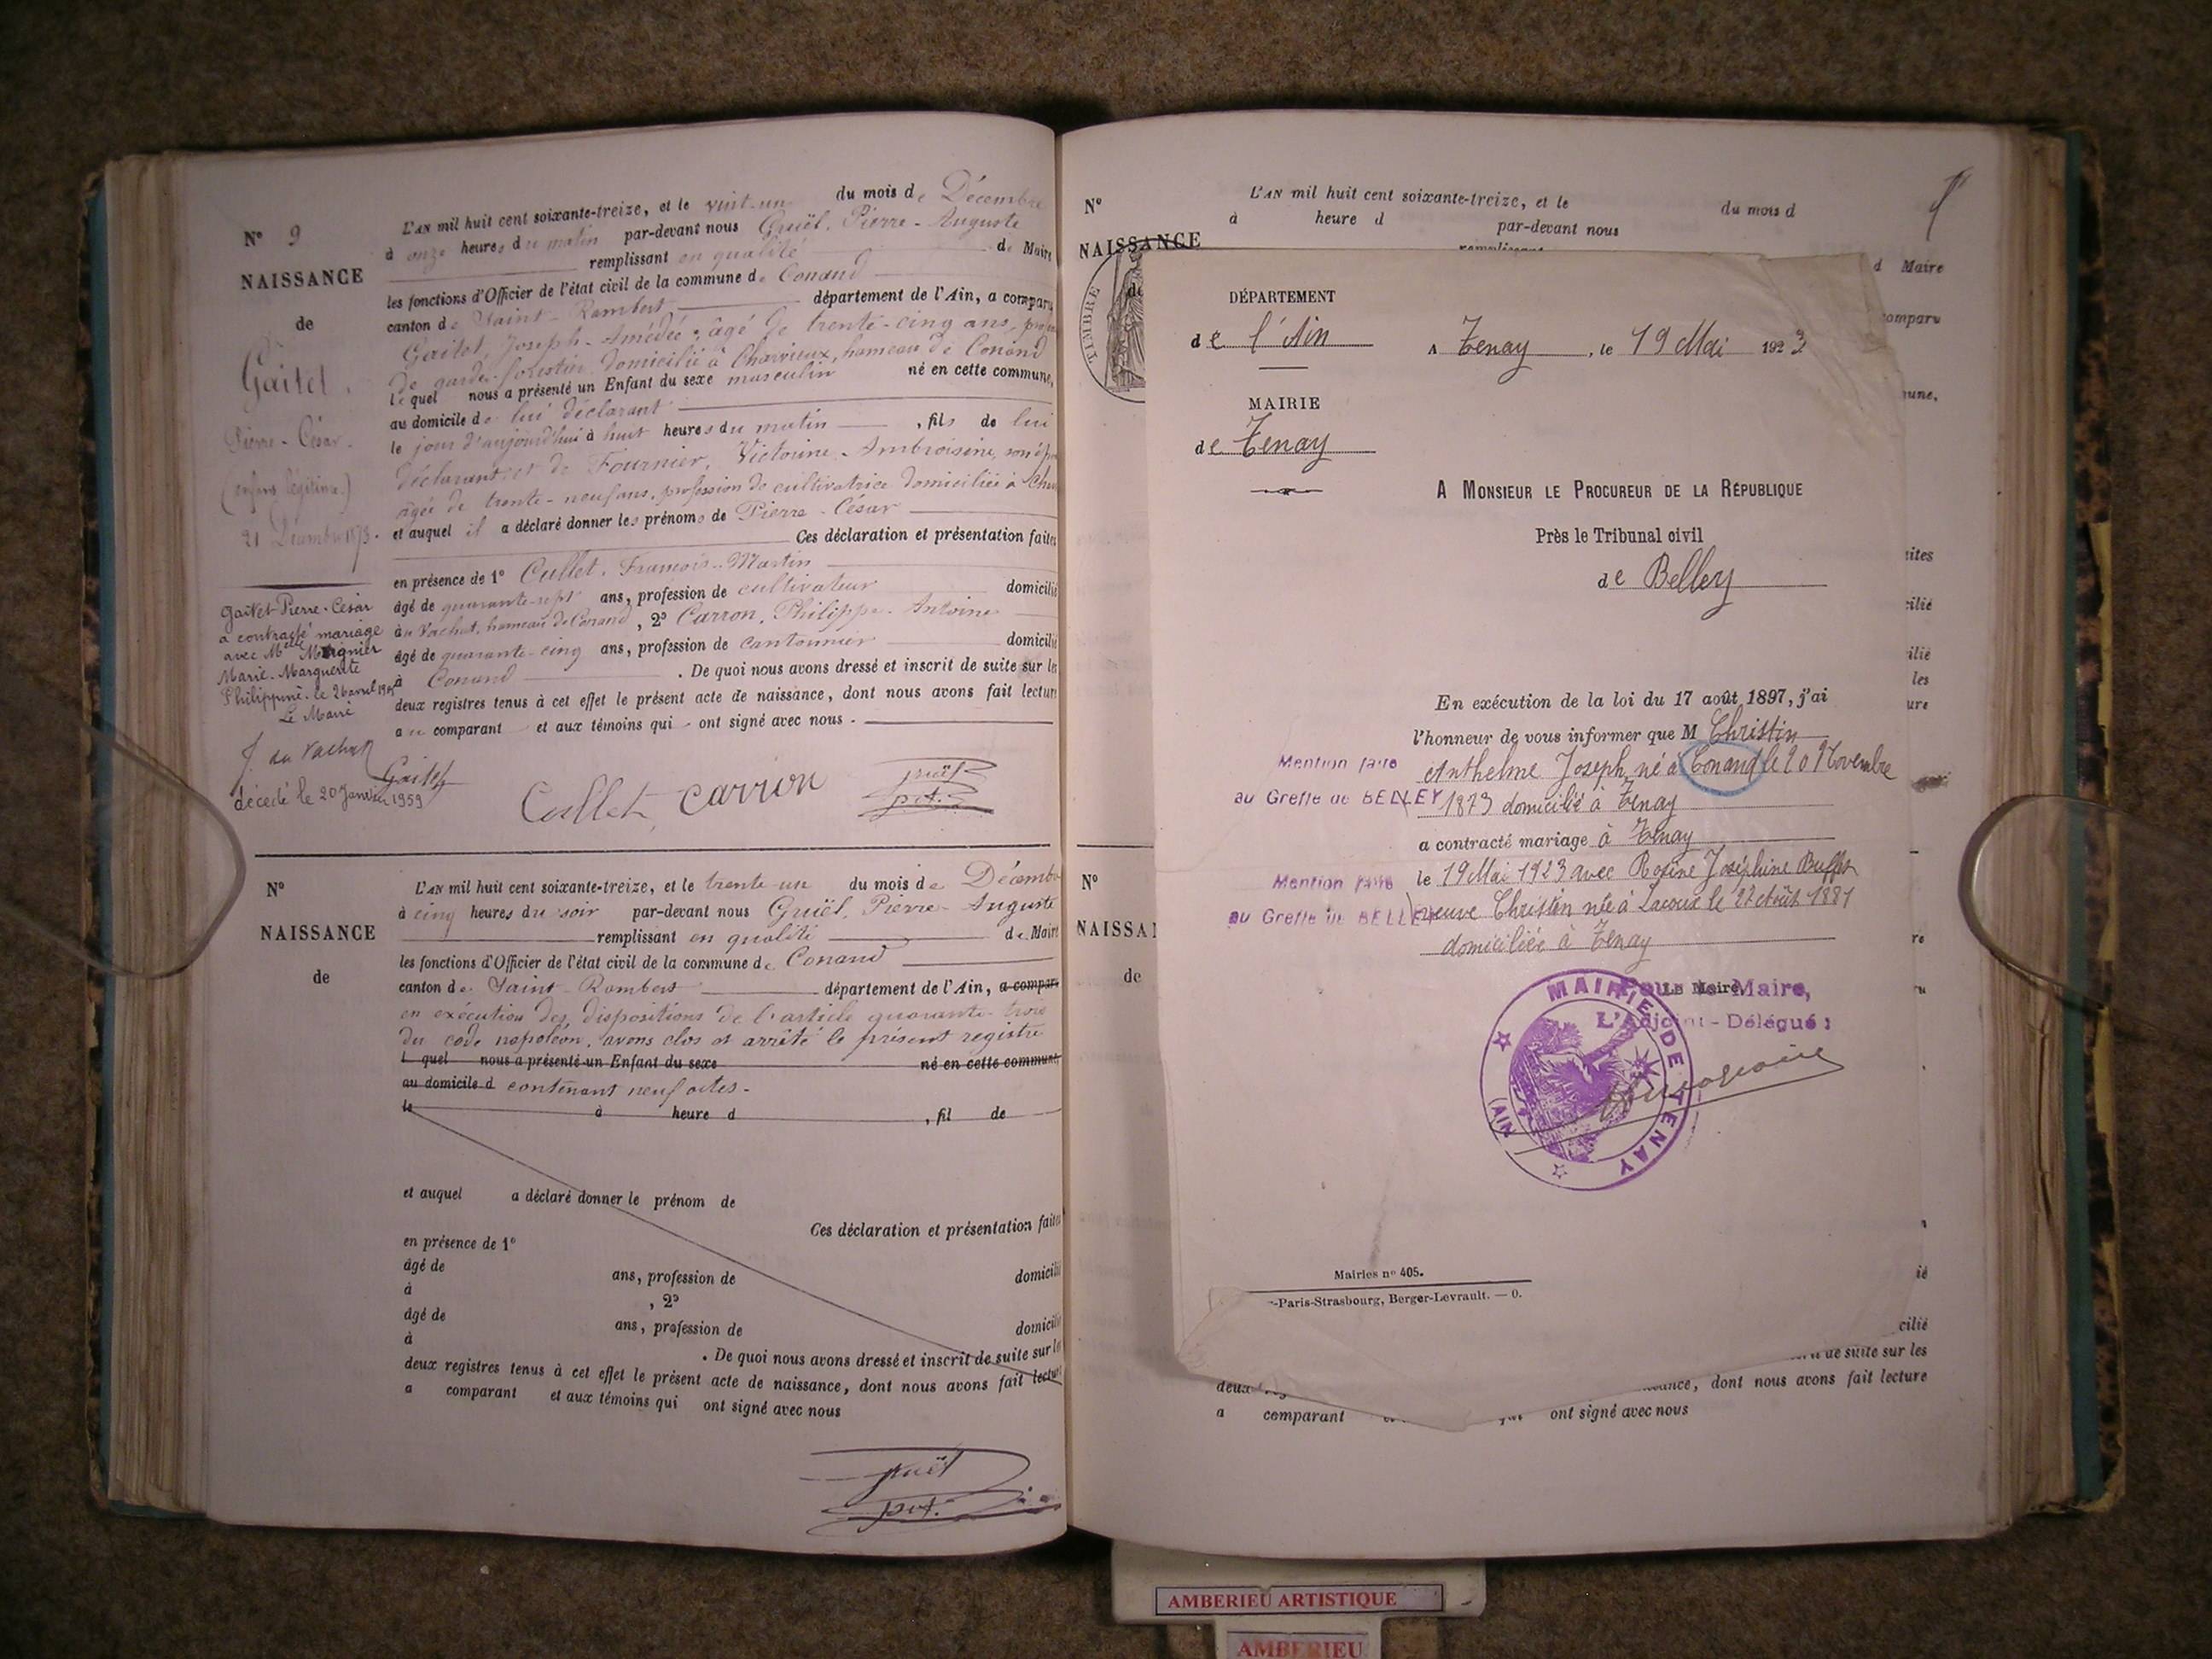 N° 9
NAISSANCE
de
Gaitet.
Pierre-César.
(enfant légitime.)
21 Décembre 1873.
Gaitet Pierre-César
a contracté mariage
avec Melle
Marie-Marguerite
Philippine. le 26 avril
Le Maire
décédé le 20 Janvier 1959
L'AN mil huit cent soixante-treize, et le vint-un du mois de Décembre
à onze heures du matin par-devant nous Gruël, Pierre-Auguste
remplissant en qualité de Maire
les fonctions d'Officier de l'état civil de la commune de Conand
canton de Saint-Rambert département de l'Ain, a comparu
Gaitet, Joseph-Amédée, âgé de trente-cinq ans,
de garde-forestier domicilié à Charvieux, hameau de Conand
lequel nous a présenté un Enfant du sexe masculin né en cette commune,
au domicile de lui déclarant
le jour d'aujourd'hui à huit heures du matin , fils de lui
déclarant et de Fournier, Victorine-Ambroisine, son
âgée de trente-neuf ans, profession de cultivatrice domiciliée à
et auquel il a déclaré donner les prénoms de Pierre-César
Ces déclaration et présentation faites
en présence de 1° Cullet, François-Martin
âgé de quarante-sept ans, profession de cultivateur domicilié
au Vachat, hameau de Conand, 2° Carron, Philippe-Antoine
âgé de quarante-cinq ans, profession de cantonnier domicilié
à Conand . De quoi nous avons dressé et inscrit de suite sur les
deux registres tenus à cet effet le présent acte de naissance, dont nous avons fait lecture
au comparant et aux témoins qui ont signé avec nous.
Gaitet
Cullet Carron Gruël
N°
NAISSANCE
de
L'AN mil huit cent soixante-treize, et le trente-un du mois de Décembre
à cinq heures du soir par-devant nous Gruël, Pierre-Auguste
remplissant en qualité de Maire
les fonctions d'Officier de l'état civil de la commune de Conand
canton de Saint-Rambert département de l'Ain, a comparu
en exécution des dispositions de l'article quarante-trois
du code napoléon, avons clos et arrêté le présent registre
l quel nous a présenté un Enfant du sexe né en cette commune,
au domicile d contenant neuf actes.
le à heure d , fil de
et auquel a déclaré donner le prénom de
Ces déclaration et présentation faites
en présence de 1°
âgé de ans, profession de domicilié
à , 2°
âgé de ans, profession de domicilié
à . De quoi nous avons dressé et inscrit de suite sur les
deux registres tenus à cet effet le présent acte de naissance, dont nous avons fait lecture
a comparant et aux témoins qui ont signé avec nous
Gruël
N°
NAISSANCE
de
TIMBRE
L'AN mil huit cent soixante-treize, et le du mois d
à heure d par-devant nous
remplissant
d Maire
comparu
DÉPARTEMENT
de l'Ain
MAIRIE
de Tenay
A Tenay, le 19 Mai 1923
A MONSIEUR LE PROCUREUR DE LA RÉPUBLIQUE
Près le Tribunal civil
de Belley
En exécution de la loi du 17 août 1897, j'ai
l'honneur de vous informer que M Christin
Anthelme Joseph, né à Conand le 20 Novembre
1873 domicilié à Tenay
a contracté mariage à Tenay
le 19 Mai 1923 avec Rosine Joséphine
veuve Christin née à Lacoux le 22 Août 1881
domiciliée à Tenay
Mention faite
au Greffe de BELLEY
Mention faite
au Greffe de BELLEY
Le Maire
Pour le Maire,
L'Adjoint-Délégué:
MAIRIE DE TENAY
(AIN)
Mairies n° 405.
-Paris-Strasbourg, Berger-Levrault. — 0.
N°
NAISSA
de
cilié
de suite sur les
deux dont nous avons fait lecture
a comparant ont signé avec nous
AMBERIEU ARTISTIQUE
AMBERIEU